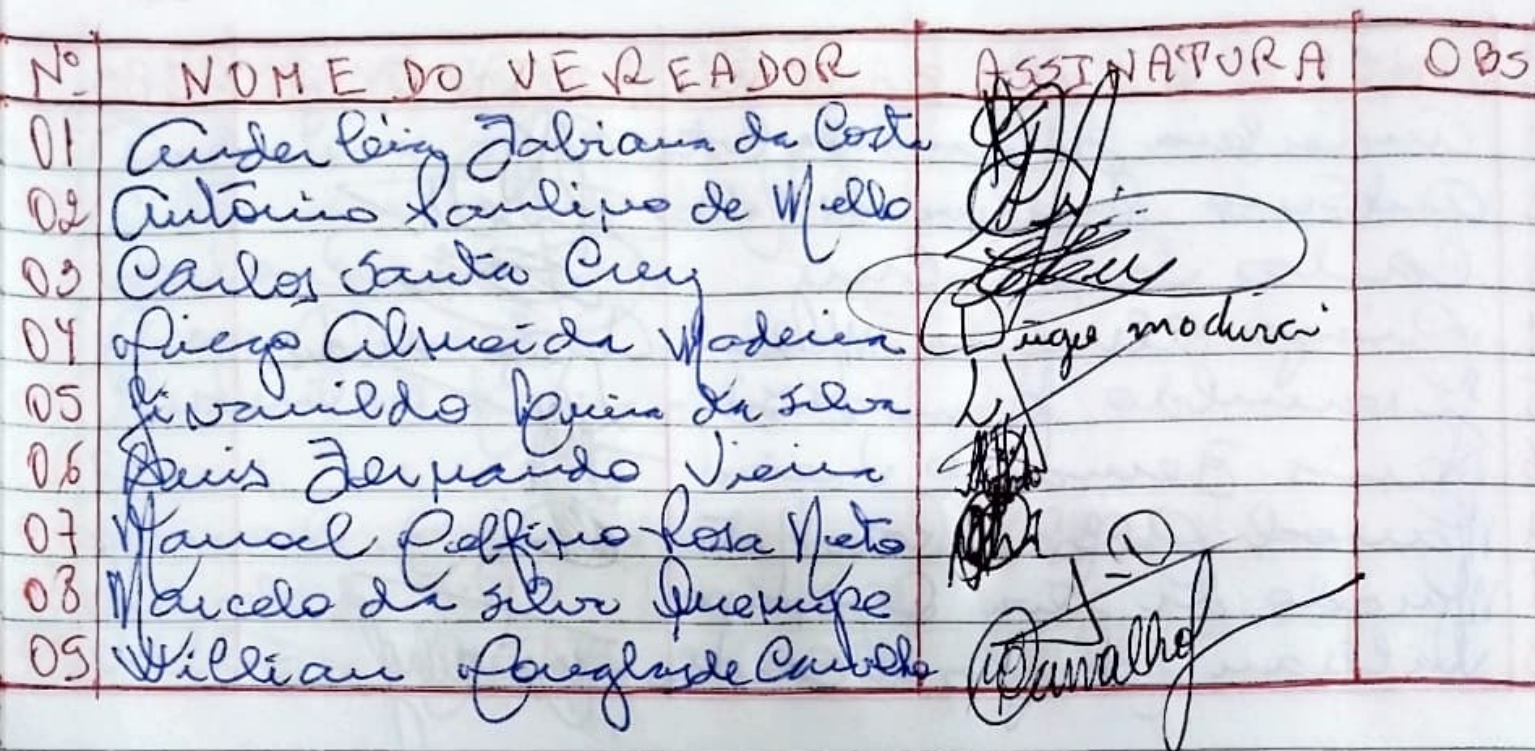 Nº NOME DO VEREADOR ASSINATURA OBS
01 Anderléia Fabiana da Costa
02 Antônio Paulino de Mello
03 Carlos Santa Cruz
04 Diego Almeida Madeira Diego madeira
05 da Silva
06 Luis Fernando Vieira
07 Manoel Delfino Rosa Neto
08 Marcelo da Silva
09 Willian Douglas de Carvalho Carvalho